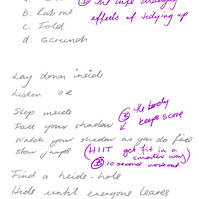 effects of tidying up
b. Rub out
c. Fold
d. Scrunch
Lay down inside
Listen OR
Step inside
③ the body keeps score
Fall your shadow
Watch your shadow as you do five
star jumps (HIIT get fit in a smarter way)
10 second workout
Find a hide-hole
Hide until everyone leaves